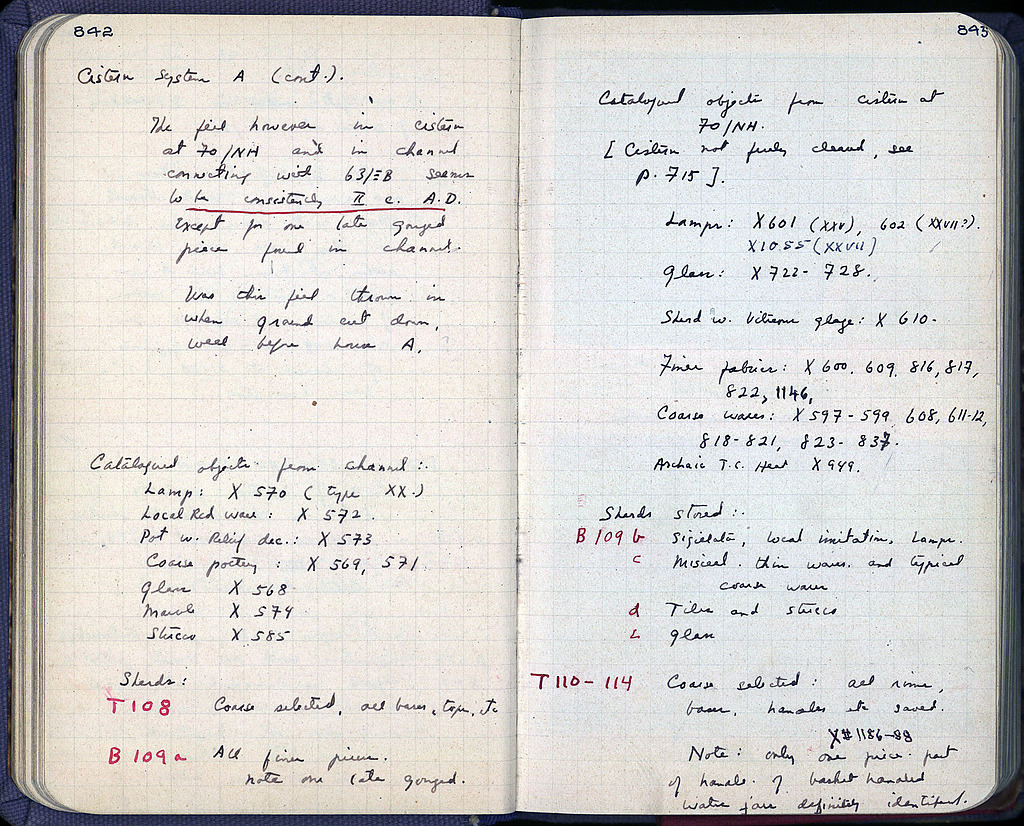 842
Cistern System A (cont.).
The fill however in cistern
at 70/NH and in channel
connecting with 63/ΞB seems
to be consistently II c. A.D.
Except for one late gouged
piece found in channel.
Was this fill thrown in
when ground cut down,
well before house A.
Catalogued objects from channel:
Lamp: X 570 (type XX.)
Local Red ware: X 572.
Pot w. Relief dec.: X 573
Coarse pottery: X 569, 571
Glass X 568
Marble X 574
Stucco X 585
Sherds:
T 108 Coarse selected, all bases, tops, etc
B 109 a All finer pieces.
note one late gouged.
843
Catalogued objects from cistern at
70/NH.
[Cistern not fully cleared, see
p. 715].
Lamps: X 601 (XXV), 602 (XXVII?).
X 1055 (XXVII)
Glass: X 722-728.
Sherd w. Vitreous glaze: X 610-
Finer fabrics: X 600, 609, 816, 817,
822, 1146,
Coarse wares: X 597-599, 608, 611-12,
818-821, 823-837.
Archaic T.C. Head X 949.
Sherds stored:
B 109 b Sigillata, local imitation, Lamps.
c Miscell. thin wares and typical
coarse wares
d Tiles and stucco
glass
T 110-114 Coarse selected: all rims,
bases, handles etc saved.
X# 1186-88
Note: only one piece part
of handle of basket handled
water jars definitely identified.